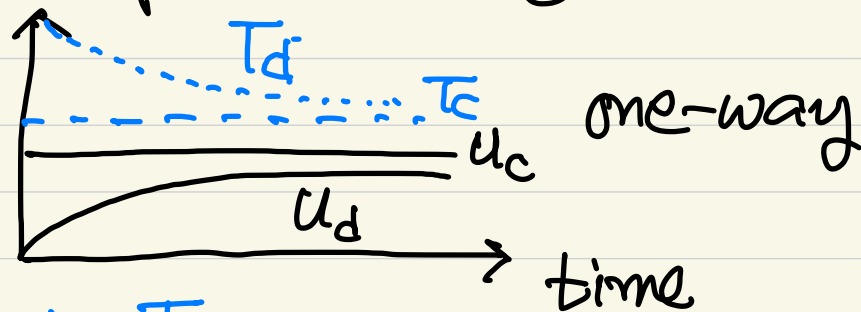 T_d
T_c
one-way
u_c
u_d
time